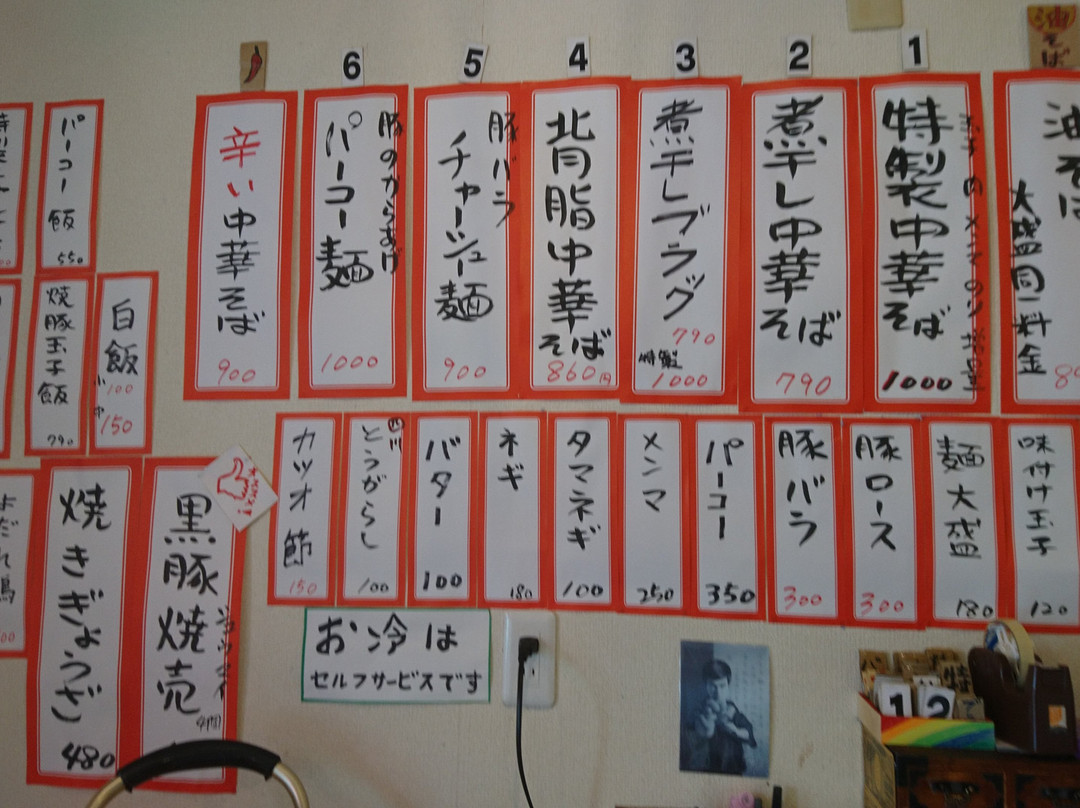 油そば
油そば
大盛同一料金
1
特製中華そば
1000
2
煮干し中華そば
790
3
煮干しブラック
790
特製
1000
4
背脂中華そば
860円
5
豚バラ
チャーシュー麺
900
6
豚のからあげ
パーコー麺
1000
辛い中華そば
900
パーコー飯
550
焼豚玉子飯
790
白飯
100
150
味付け玉子
120
麺大盛
180
豚ロース
300
豚バラ
300
パーコー
350
メンマ
250
タマネギ
100
ネギ
180
バター
100
とうがらし
100
カツオ節
150
黒豚焼売
焼きぎょうざ
480
お冷は
セルフサービスです
1
2